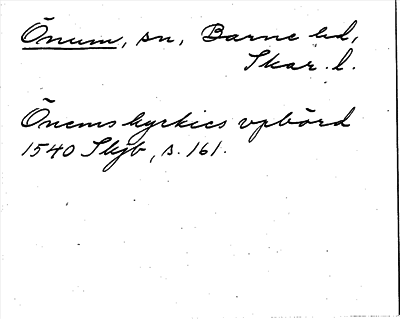 Önum, sn, Barne hd,
Skar. l.
Önems kyrkies vpbörd
1540 Skjb, s. 161.